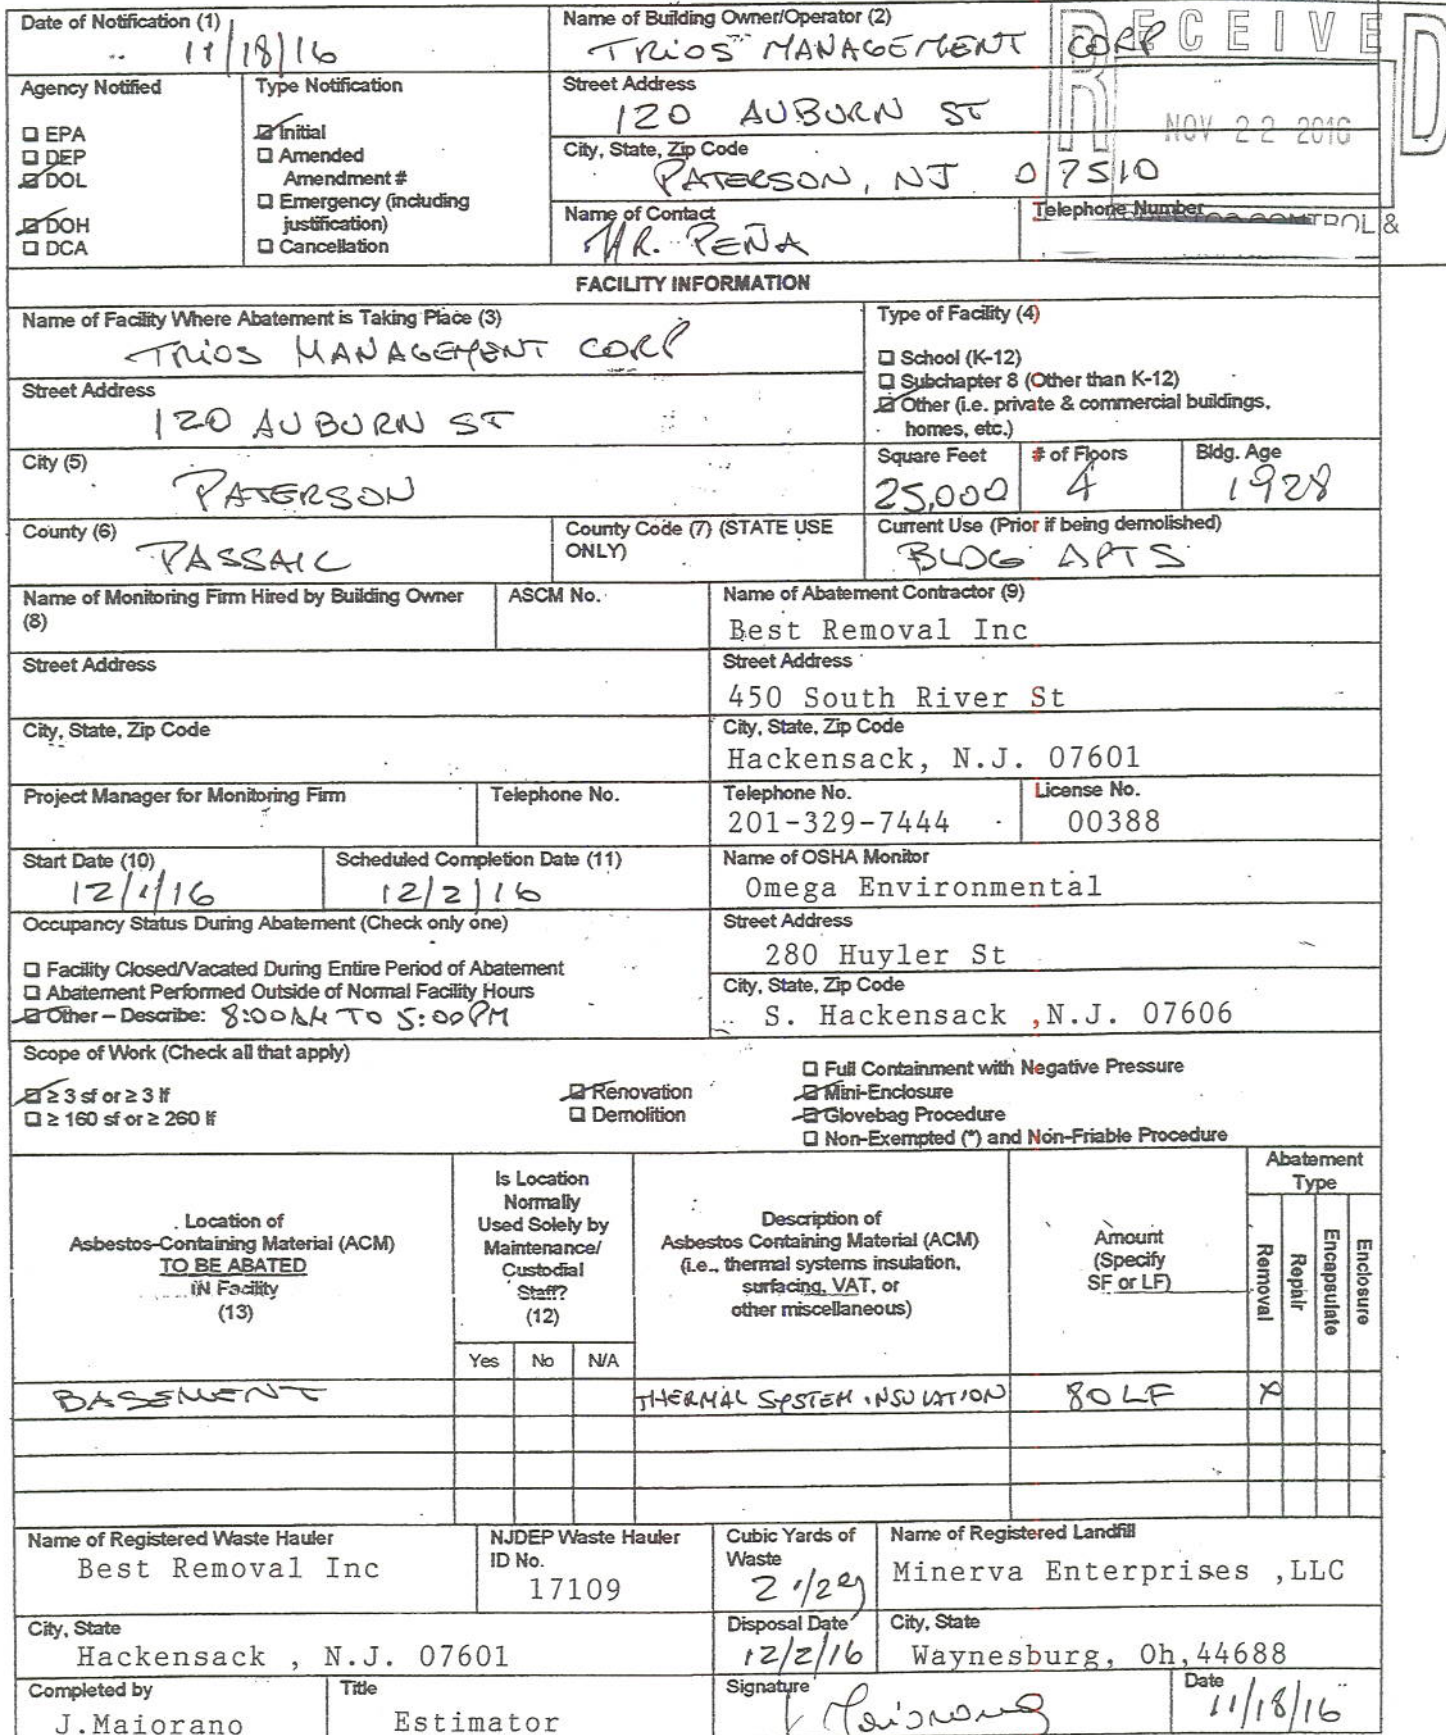 Date of Notification (1)
11/18/16
Name of Building Owner/Operator (2)
TRIOS MANAGEMENT CORP
RECEIVED
NOV 22 2016
Agency Notified
☐ EPA
☐ DEP
☑ DOL
☑ DOH
☐ DCA
Type Notification
☑ Initial
☐ Amended
Amendment #
☐ Emergency (including
justification)
☐ Cancellation
Street Address
120 AUBURN ST
City, State, Zip Code
PATERSON, NJ 07510
Name of Contact
MR. PEÑA
Telephone Number
CONTROL &
FACILITY INFORMATION
Name of Facility Where Abatement is Taking Place (3)
TRIOS MANAGEMENT CORP
Type of Facility (4)
☐ School (K-12)
☐ Subchapter 8 (Other than K-12)
☑ Other (i.e. private & commercial buildings,
homes, etc.)
Street Address
120 AUBURN ST
City (5)
PATERSON
Square Feet
25,000
# of Floors
4
Bldg. Age
1928
County (6)
PASSAIC
County Code (7) (STATE USE
ONLY)
Current Use (Prior if being demolished)
BLDG APTS
Name of Monitoring Firm Hired by Building Owner
(8)
ASCM No.
Name of Abatement Contractor (9)
Best Removal Inc
Street Address
Street Address
450 South River St
City, State, Zip Code
City, State, Zip Code
Hackensack, N.J. 07601
Project Manager for Monitoring Firm
Telephone No.
Telephone No.
201-329-7444
License No.
00388
Start Date (10)
12/1/16
Scheduled Completion Date (11)
12/2/16
Name of OSHA Monitor
Omega Environmental
Occupancy Status During Abatement (Check only one)
☐ Facility Closed/Vacated During Entire Period of Abatement
☐ Abatement Performed Outside of Normal Facility Hours
☑ Other – Describe: 8:00AM TO 5:00PM
Street Address
280 Huyler St
City, State, Zip Code
S. Hackensack ,N.J. 07606
Scope of Work (Check all that apply)
☑ ≥ 3 sf or ≥ 3 lf
☐ ≥ 160 sf or ≥ 260 lf
☑ Renovation
☐ Demolition
☐ Full Containment with Negative Pressure
☑ Mini-Enclosure
☑ Glovebag Procedure
☐ Non-Exempted (*) and Non-Friable Procedure
Location of
Asbestos-Containing Material (ACM)
TO BE ABATED
IN Facility
(13)
Is Location
Normally
Used Solely by
Maintenance/
Custodial
Staff?
(12)
Yes No N/A
Description of
Asbestos Containing Material (ACM)
(i.e., thermal systems insulation,
surfacing, VAT, or
other miscellaneous)
Amount
(Specify
SF or LF)
Abatement
Type
Removal
Repair
Encapsulate
Enclosure
BASEMENT THERMAL SYSTEM INSULATION 80 LF X
Name of Registered Waste Hauler
Best Removal Inc
NJDEP Waste Hauler
ID No.
17109
Cubic Yards of
Waste
2 1/2
Name of Registered Landfill
Minerva Enterprises ,LLC
City, State
Hackensack , N.J. 07601
Disposal Date
12/2/16
City, State
Waynesburg, Oh,44688
Completed by
J.Maiorano
Title
Estimator
Signature
J Maiorano
Date
11/18/16